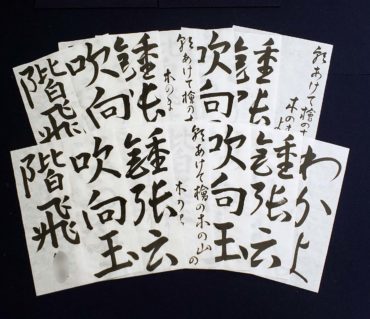 あけて檜の
木の
鍾張
吹向
あけて檜の
木の
鍾張
吹向
階飛
わかよ
鍾張云
吹向玉
あけて檜の木の山の
木の
鍾張云
吹向玉
階飛